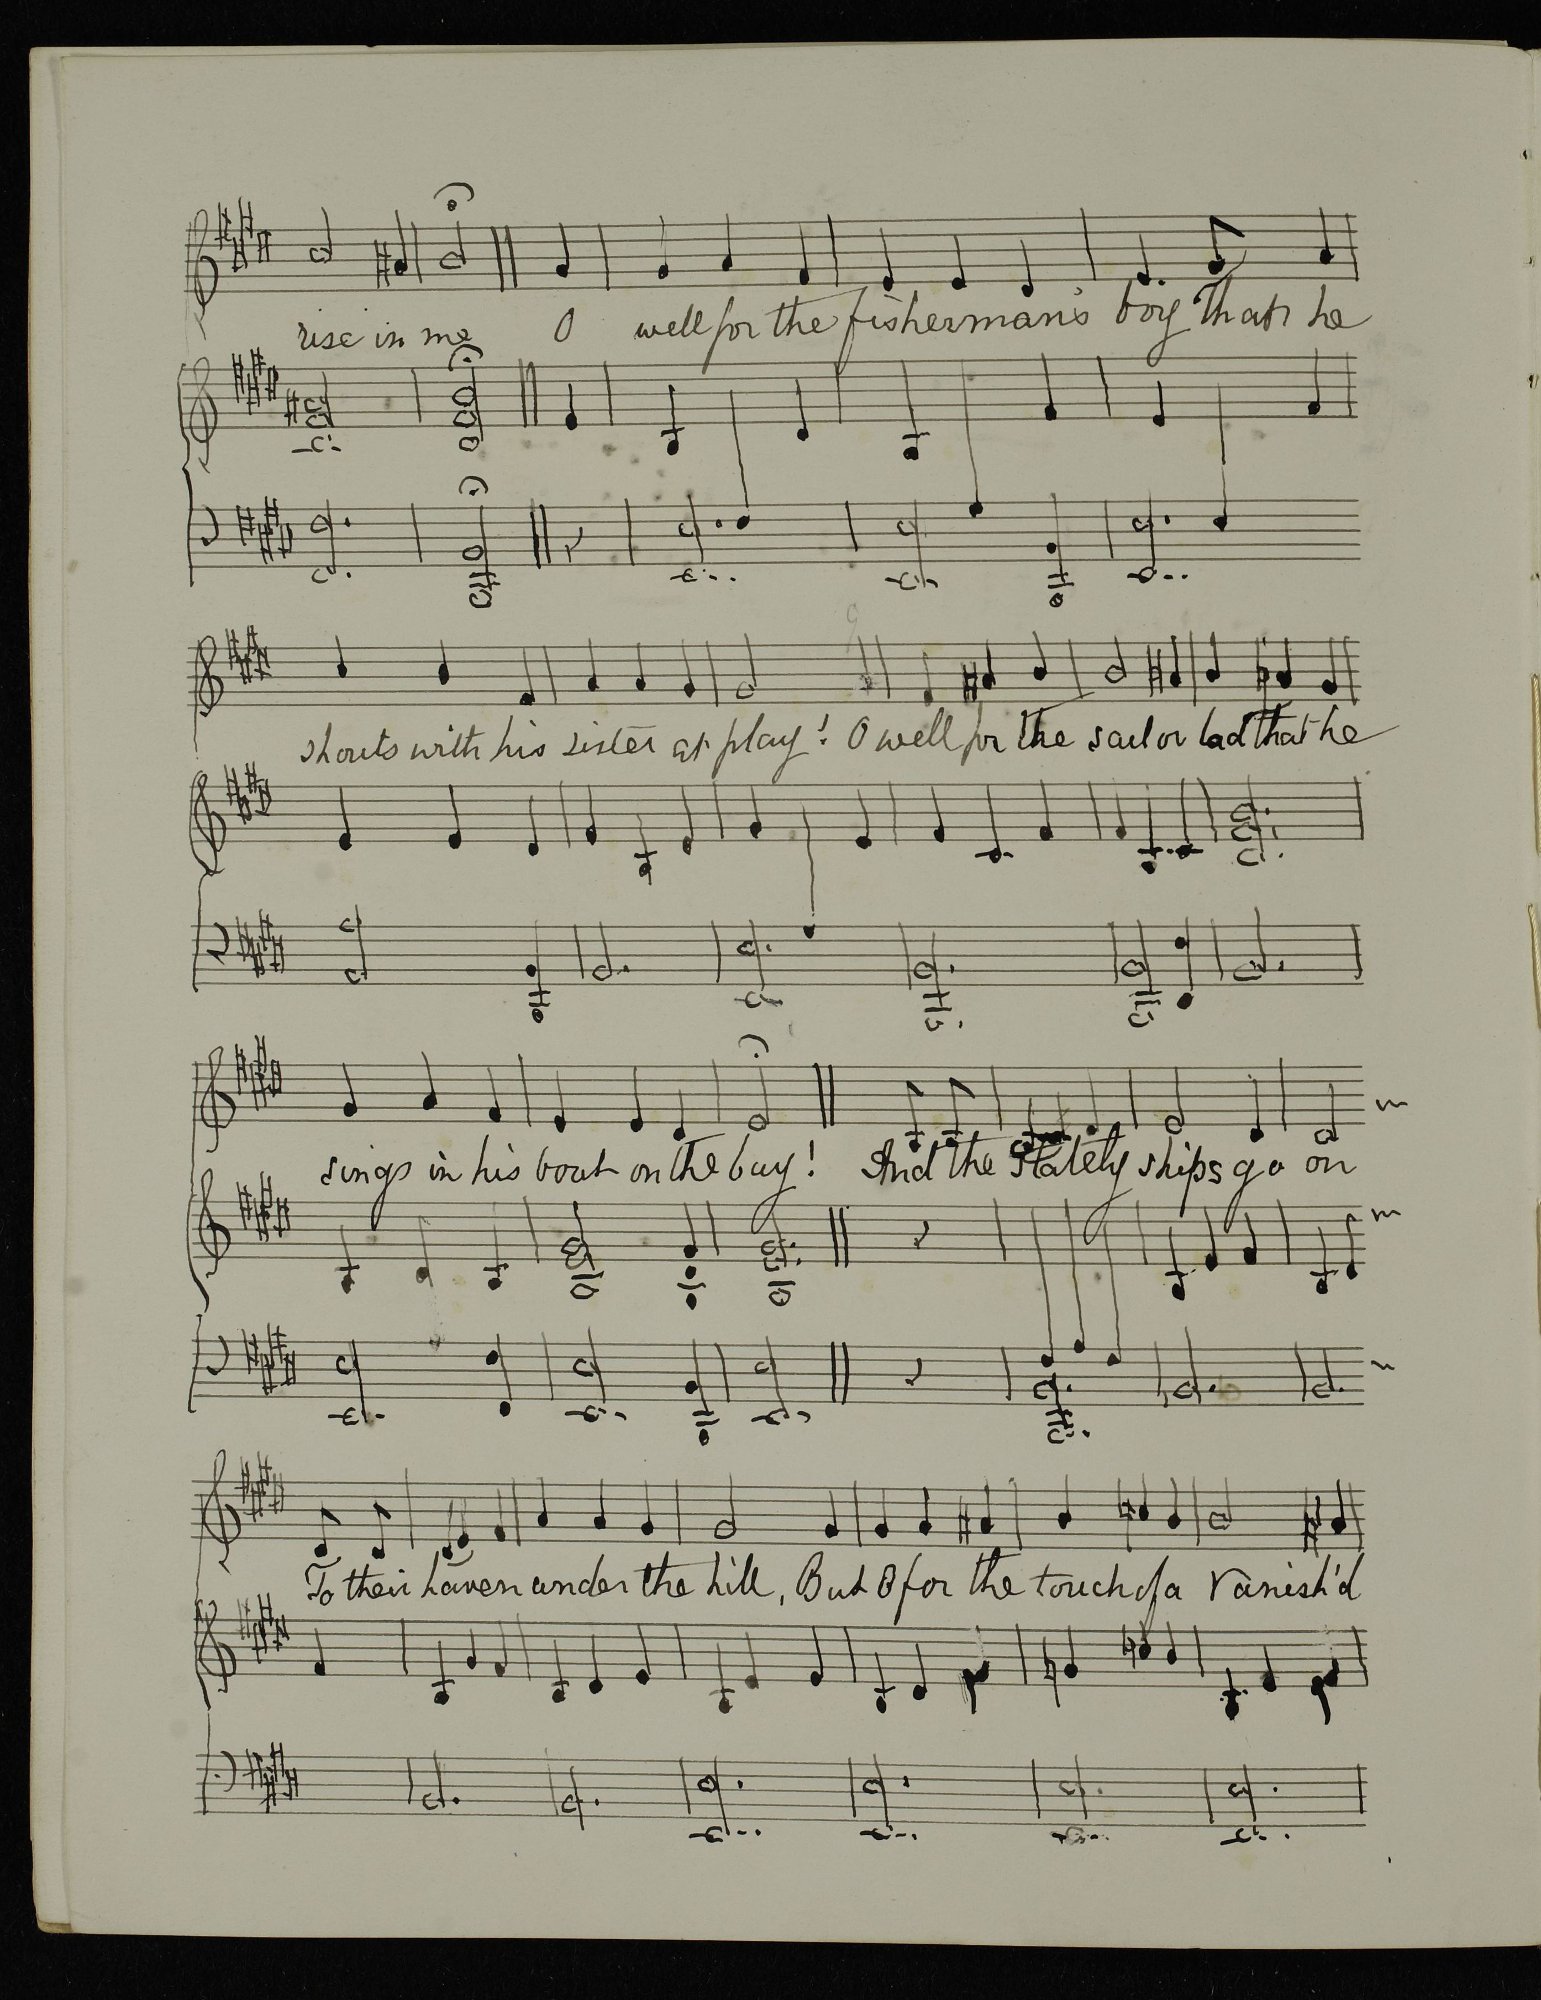 rise in me O well for the fisherman's boy That he
shouts with his sister at play! O well for the sailor lad that he
sings in his boat on the bay! And the stately ships go on
To their haven under the hill, But O for the touch of a Vanish'd